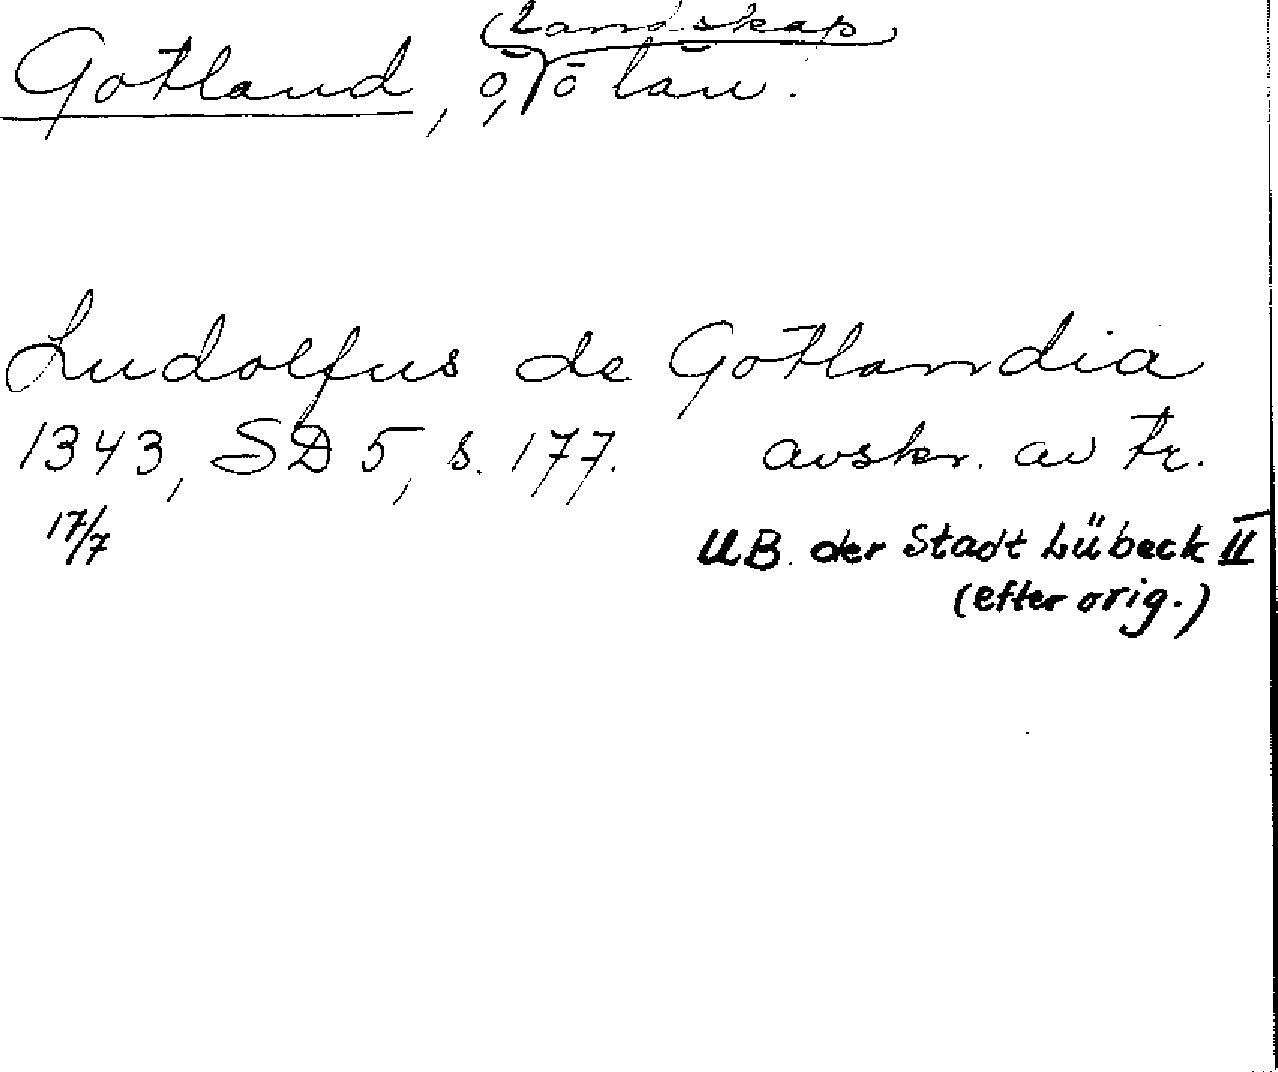 landskap
Gotland, ö, o län.
Ludolfus de Gotlandia
1343, SD 5, s. 177. avskr. av tr.
17/7 UB. der Stadt Lübeck II
(efter orig.)